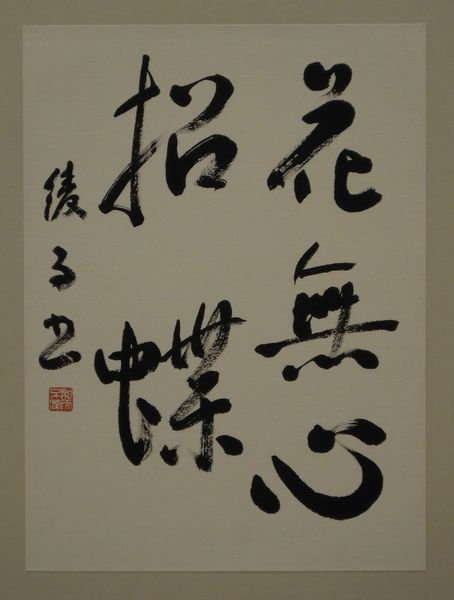 花無心
招蝶
綾子書